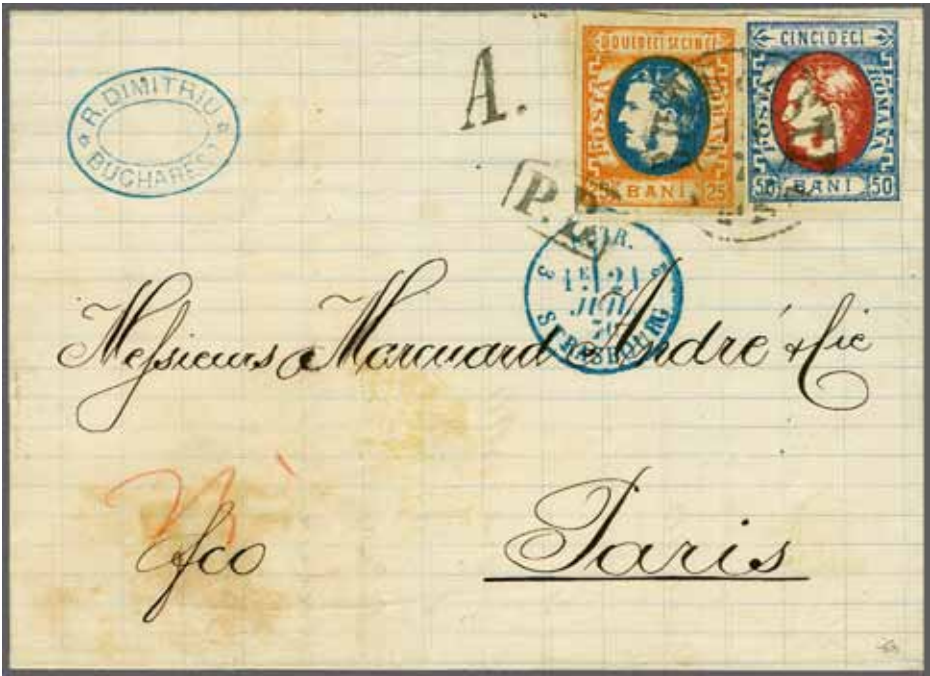 R. DIMITRIU
BUCHAREST
A.
DOUEDECI SI CINCI
POSTA
ROMANA
25 BANI 25
CINCI DECI
POSTA
ROMANA
50 BANI 50
P.D.
3 STRASBOURG 3
21
JUIL.
70
Messieurs Marcuard André & Cie
fco
Paris